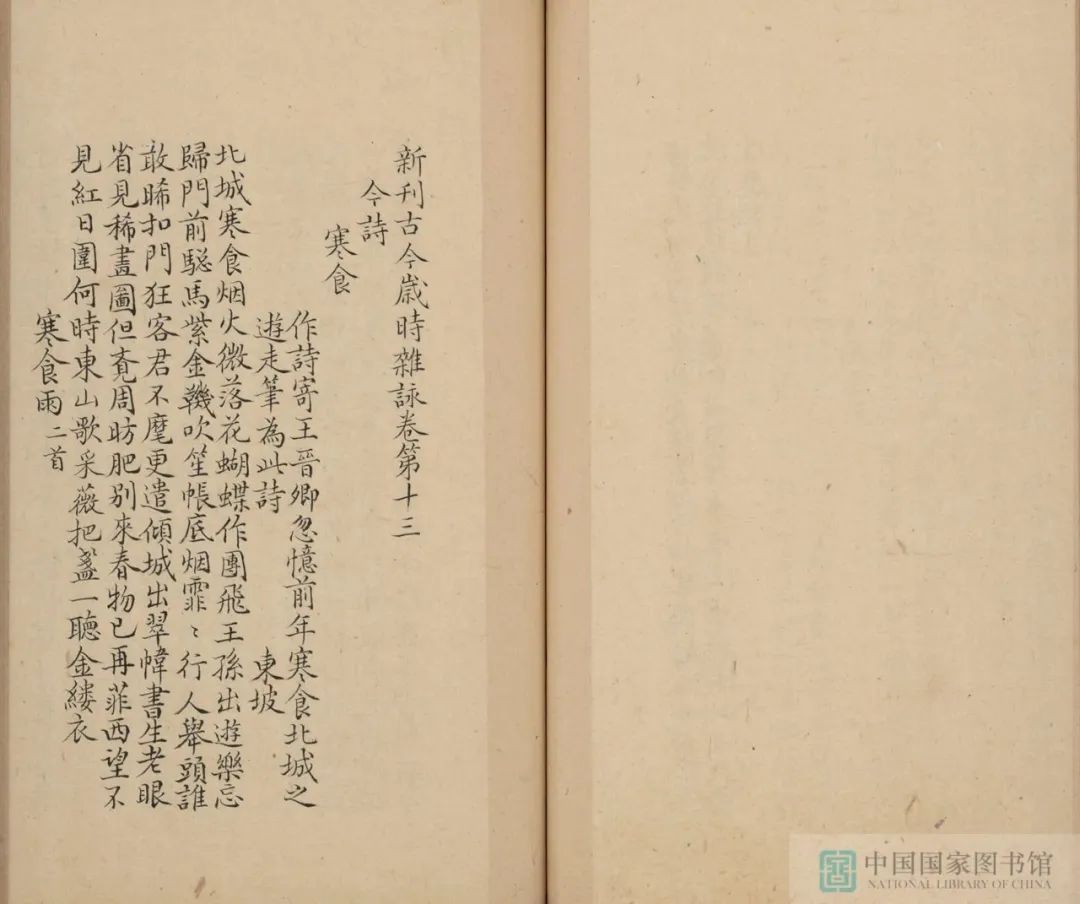 新刊古今歳時雜詠卷第十三
今詩
寒食
作詩寄王晉卿忽憶前年寒食北城之
遊走筆為此詩 東坡
北城寒食烟火微落花蝴蝶作團飛王孫出遊樂忘
歸門前驄馬紫金鞿吹笙帳底烟霏〻行人舉頭誰
敢睎扣門狂客君不麾更遣傾城出翠幃書生老眼
省見稀畫圖但覓周昉肥别來春物已再菲西望不
見紅日圍何時東山歌采薇把盞一聽金縷衣
寒食雨二首
中国国家图书馆
NATIONAL LIBRARY OF CHINA